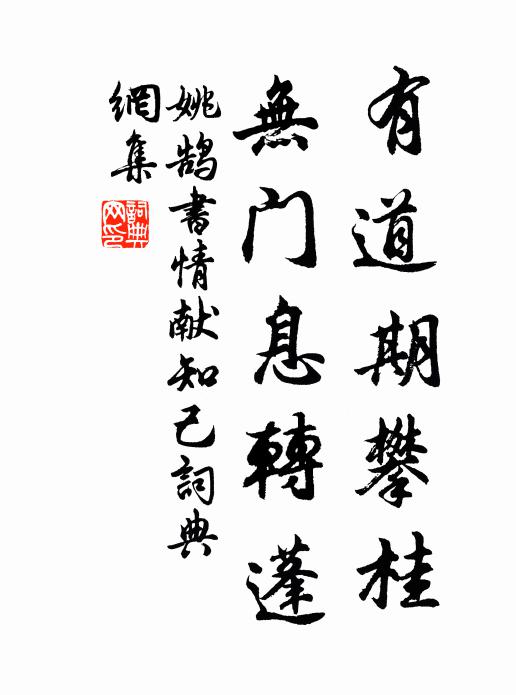 有道期攀桂
無门息轉蓬
姚鹄書情献知己詞典
網集
詞典
网印